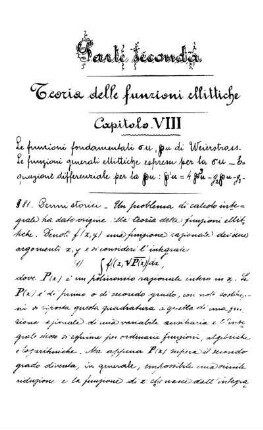 Parte seconda
Teoria delle funzioni ellittiche
Capitolo VIII
Le funzioni fondamentali σu, pu di Weierstrass.
Le funzioni generali ellittiche espresse per la σu — E-
quazione differenziale per la pu: p'²u = 4p³u - g₂pu - g₃
§ 81. Cenni storici. — Un problema di calcolo inte-
grale ha dato origine alla teoria delle funzioni ellit-
tiche. Denoti f(x,y) una funzione razionale dei due
argomenti x, y e si consideri l'integrale
1) ∫ f(x, √P(x)) dx,
dove P(x) è un polinomio razionale intero in x. Se
P(x) è di primo o di secondo grado, con note sostitu-
zioni si riporta questa quadratura a quella di una fun-
zione razionale di una variabile ausiliaria e l'inte-
grale stesso si esprime per ordinarie funzioni, algebriche
e logaritmiche. Ma appena P(x) supera il secondo
grado diventa, in generale, impossibile una simile
riduzione e la funzione di x che nasce dall'integra